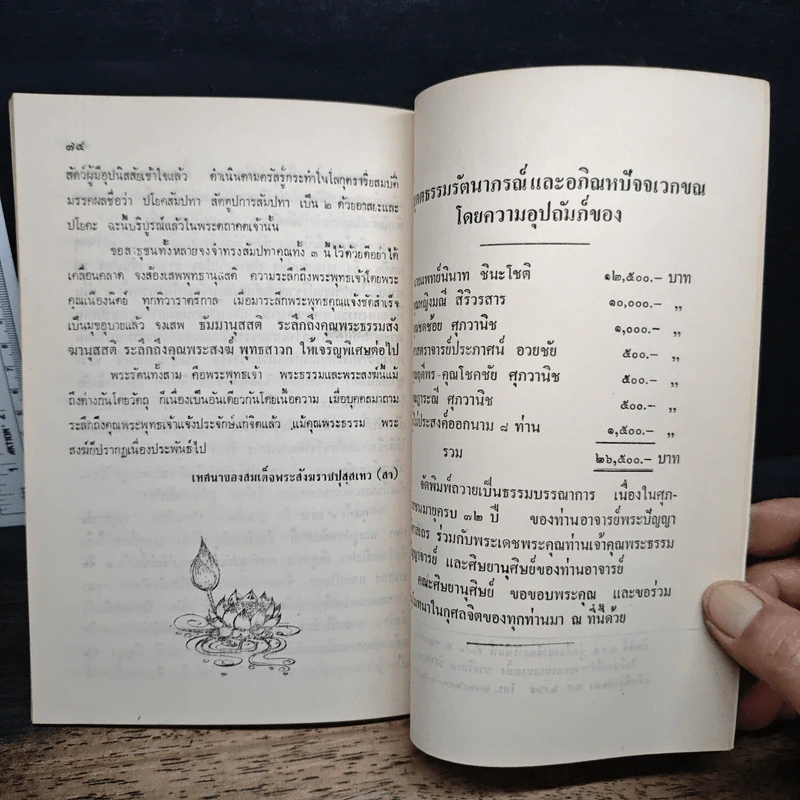 ๗๔
สัตว์ผู้มีอุปนิสสัยเข้าใจแล้ว ดำเนินตามตรัสรู้กระทำในโลกุตรจริยสมบัติ
มรรคผลชื่อว่า ปโยคสัมปทา สัตตูปการสัมปทา เป็น ๒ ด้วยอาสยะและ
ปโยคะ ฉะนี้บริบูรณ์แล้วในพระตถาคตเจ้านั้น
ขอสาธุชนทั้งหลายจงจำทรงสัมปทาคุณทั้ง ๓ นี้ไว้ด้วยดีอย่าได้
เคลื่อนคลาด จงส้องเสพพุทธานุสสติ ความระลึกถึงพระพุทธเจ้าโดยพระ
คุณเนืองนิตย์ ทุกทิวาราตรีกาล เมื่อมาระลึกพระพุทธคุณแจ้งชัดสำเร็จ
เป็นมุขอุบายแล้ว จงเสพ ธัมมานุสสติ ระลึกถึงคุณพระธรรมสัง
ฆานุสสติ ระลึกถึงคุณพระสงฆ์ พุทธสาวก ให้เจริญพิเศษต่อไป
พระรัตนทั้งสาม คือพระพุทธเจ้า พระธรรมและพระสงฆ์นี้แม้
ถึงต่างกันโดยวัตถุ ก็เนื่องเป็นอันเดียวกันโดยเนื้อความ เมื่อบุคคลมาตาม
ระลึกถึงคุณพระพุทธเจ้าแจ้งประจักษ์แก่จิตแล้ว แม้คุณพระธรรม พระ
สงฆ์ก็ปรากฏเนื่องประพันธ์ไป
เทศนาของสมเด็จพระสังฆราชปุสฺสเทว (สา)
ธรรมรัตนาภรณ์ และอภิณหปัจจเวกขณ
โดยความอุปถัมภ์ของ
นินาท ชินะโชติ ๑๒,๕๐๐.– บาท
มณี สิริวรสาร ๑๐,๐๐๐.– ,,
ศุภวานิช ๑,๐๐๐.– ,,
ประภาศน์ อวยชัย ๕๐๐.– ,,
คุณโชคชัย ศุภวานิช ๕๐๐.– ,,
ศุภวานิช ๕๐๐.– ,,
ประสงค์ออกนาม ๘ ท่าน ๑,๕๐๐.– ,,
รวม ๒๖,๕๐๐.– บาท
จัดพิมพ์ถวายเป็นธรรมบรรณาการ เนื่องในศุภ-
ชนมายุครบ ๓๒ ปี ของท่านอาจารย์พระปัญญา
ร่วมกับพระเดชพระคุณท่านเจ้าคุณพระธรรม
และศิษยานุศิษย์ของท่านอาจารย์
คณะศิษยานุศิษย์ ขอขอบพระคุณ และขอร่วม
ในกุศลจิตของทุกท่านมา ณ ที่นี้ด้วย